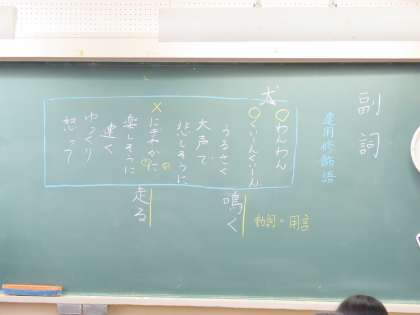 副詞
連用修飾語
犬
わんわん
くぃんくぃーん
うるさく
大声で
悲しそうに
にぎやかに
楽しそうに
速く
ゆっくり
怒って
鳴く
動詞・用言
走る